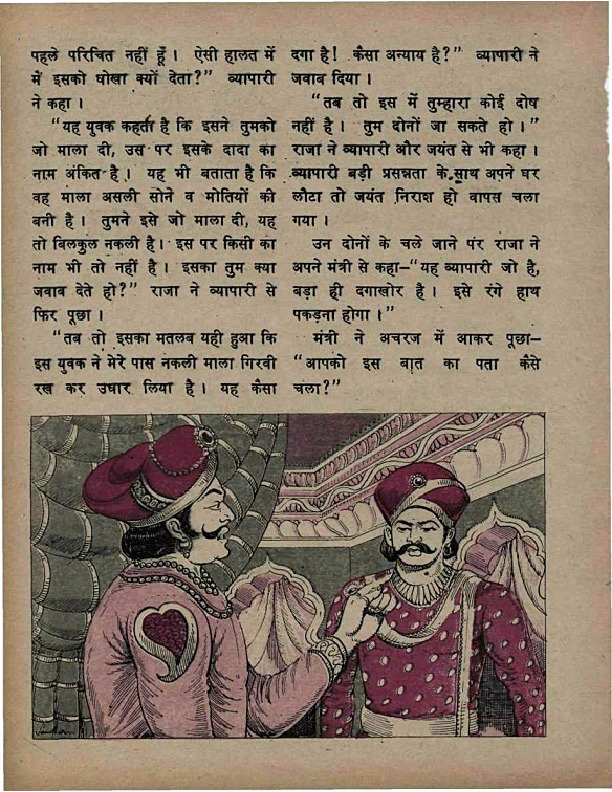 पहले परिचित नहीं हूँ। ऐसी हालत में
में इसको धोखा क्यों देता?” व्यापारी
ने कहा।
“यह युवक कहता है कि इसने तुमको
जो माला दी, उस पर इसके दादा का
नाम अंकित है। यह भी बताता है कि
वह माला असली सोने व मोतियों की
बनी है। तुमने इसे जो माला दी, यह
तो बिलकुल नकली है। इस पर किसी का
नाम भी तो नहीं है। इसका तुम क्या
जवाब देते हो?” राजा ने व्यापारी से
फिर पूछा।
“तब तो इसका मतलब यही हुआ कि
इस युवक ने मेरे पास नकली माला गिरवी
रख कर उधार लिया है। यह कैसा
दगा है! कैसा अन्याय है?” व्यापारी ने
जवाब दिया।
“तब तो इस में तुम्हारा कोई दोष
नहीं है। तुम दोनों जा सकते हो।”
राजा ने व्यापारी और जयंत से भी कहा।
व्यापारी बड़ी प्रसन्नता के साथ अपने घर
लौटा तो जयंत निराश हो वापस चला
गया।
उन दोनों के चले जाने पर राजा ने
अपने मंत्री से कहा–“यह व्यापारी जो है,
बड़ा ही दगाखोर है। इसे रंगे हाथ
पकड़ना होगा।”
मंत्री ने अचरज में आकर पूछा–
“आपको इस बात का पता कैसे
चला?”